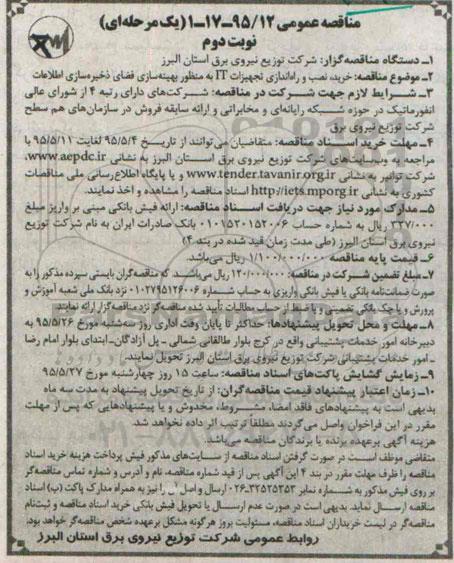 مناقصه عمومی ۹۵/۱۲-۱۷-۱ (یک مرحله‌ای)
نوبت دوم
۱- دستگاه مناقصه‌گزار: شرکت توزیع نیروی برق استان البرز
۲- موضوع مناقصه: خرید، نصب و راه‌اندازی تجهیزات IT به منظور بهینه‌سازی فضای ذخیره‌سازی اطلاعات
۳- شرایط لازم جهت شرکت در مناقصه: شرکت‌های دارای رتبه ۴ از شورای عالی
انفورماتیک در حوزه شبکه رایانه‌ای و مخابراتی و ارائه سابقه فروش در سازمان‌های هم سطح
شرکت توزیع نیروی برق
۴- مهلت خرید اسناد مناقصه: متقاضیان می‌توانند از تاریخ ۹۵/۵/۴ لغایت ۹۵/۵/۱۱ با
مراجعه به وب‌سایت‌های شرکت توزیع نیروی برق استان البرز به نشانی www.aepdc.ir،
شرکت توانیر به نشانی www.tender.tavanir.org.ir و یا پایگاه اطلاع‌رسانی ملی مناقصات
کشوری به نشانی http://iets.mporg.ir اسناد مناقصه را مشاهده و اخذ نمایند.
۵- مدارک مورد نیاز جهت دریافت اسناد مناقصه: ارائه فیش بانکی مبنی بر واریز مبلغ
۳۲۷/۰۰۰ ریال به شماره حساب ۰۱۰۱۵۲۰۱۵۲۰۰۶ بانک صادرات ایران به نام شرکت توزیع
نیروی برق استان البرز (طی مدت زمان قید شده در بند ۴)
۶- قیمت پایه مناقصه ۱/۱۰۰/۰۰۰/۰۰۰ ریال می‌باشد.
۷- مبلغ تضمین شرکت در مناقصه: ۱۲۰/۰۰۰/۰۰۰ ریال می‌باشد که مناقصه‌گران بایستی سپرده مذکور را به
صورت ضمانت‌نامه بانکی یا فیش بانکی واریزی به حساب شماره ۰۱۰۲۷۹۵۱۲۶۰۰۶ نزد بانک ملی شعبه آموزش و
پرورش و یا چک بانکی تضمینی و یا ضبط از حساب مطالبات تأیید شده مناقصه‌گر نزد مناقصه‌گزار ارائه نمایند.
۸- مهلت و محل تحویل پیشنهادها: حداکثر تا پایان وقت اداری روز سه‌شنبه مورخ ۹۵/۵/۲۶ به
دبیرخانه امور خدمات پشتیبانی واقع در کرج بلوار طالقانی شمالی - پل آزادگان - ابتدای بلوار امام رضا
- امور خدمات پشتیبانی شرکت توزیع نیروی برق استان البرز تحویل نمایند.
۹- زمایش گشایش پاکت‌های اسناد مناقصه: ساعت ۱۵ روز چهارشنبه مورخ ۹۵/۵/۲۷
۱۰- زمان اعتبار پیشنهاد قیمت مناقصه‌گران: از تاریخ تحویل پیشنهاد به مدت سه ماه
بدیهی است به پیشنهادهای فاقد امضا، مشروط، مخدوش و یا پیشنهادهایی که پس از مهلت
مقرر در این فراخوان واصل می‌گردند مطلقا ترتیب اثر داده نخواهد شد.
هزینه آگهی برعهده برنده یا برندگان مناقصه می‌باشد.
متقاضی موظف است در صورت گرفتن اسناد مناقصه از سایت‌های مذکور فیش پرداخت هزینه خرید اسناد
مناقصه را ظرف مهلت مقرر در بند ۴ این آگهی پس از قید شماره مناقصه، نام و آدرس و شماره تماس مناقصه‌گر
بر روی فیش مذکور به شماره نمابر ۳۲۵۲۵۳۵۳-۰۲۶ ارسال و اصل آن را نیز به همراه مدارک پاکت (ب) اسناد
مناقصه ارسال نماید. بدیهی است در صورت عدم ارسال یا تحویل فیش بانکی خرید اسناد مناقصه و ثبت‌نام
مناقصه‌گر در لیست خریداران اسناد مناقصه، مسئولیت بروز هرگونه مشکل برعهده شخص مناقصه‌گر خواهد بود.
روابط عمومی شرکت توزیع نیروی برق استان البرز